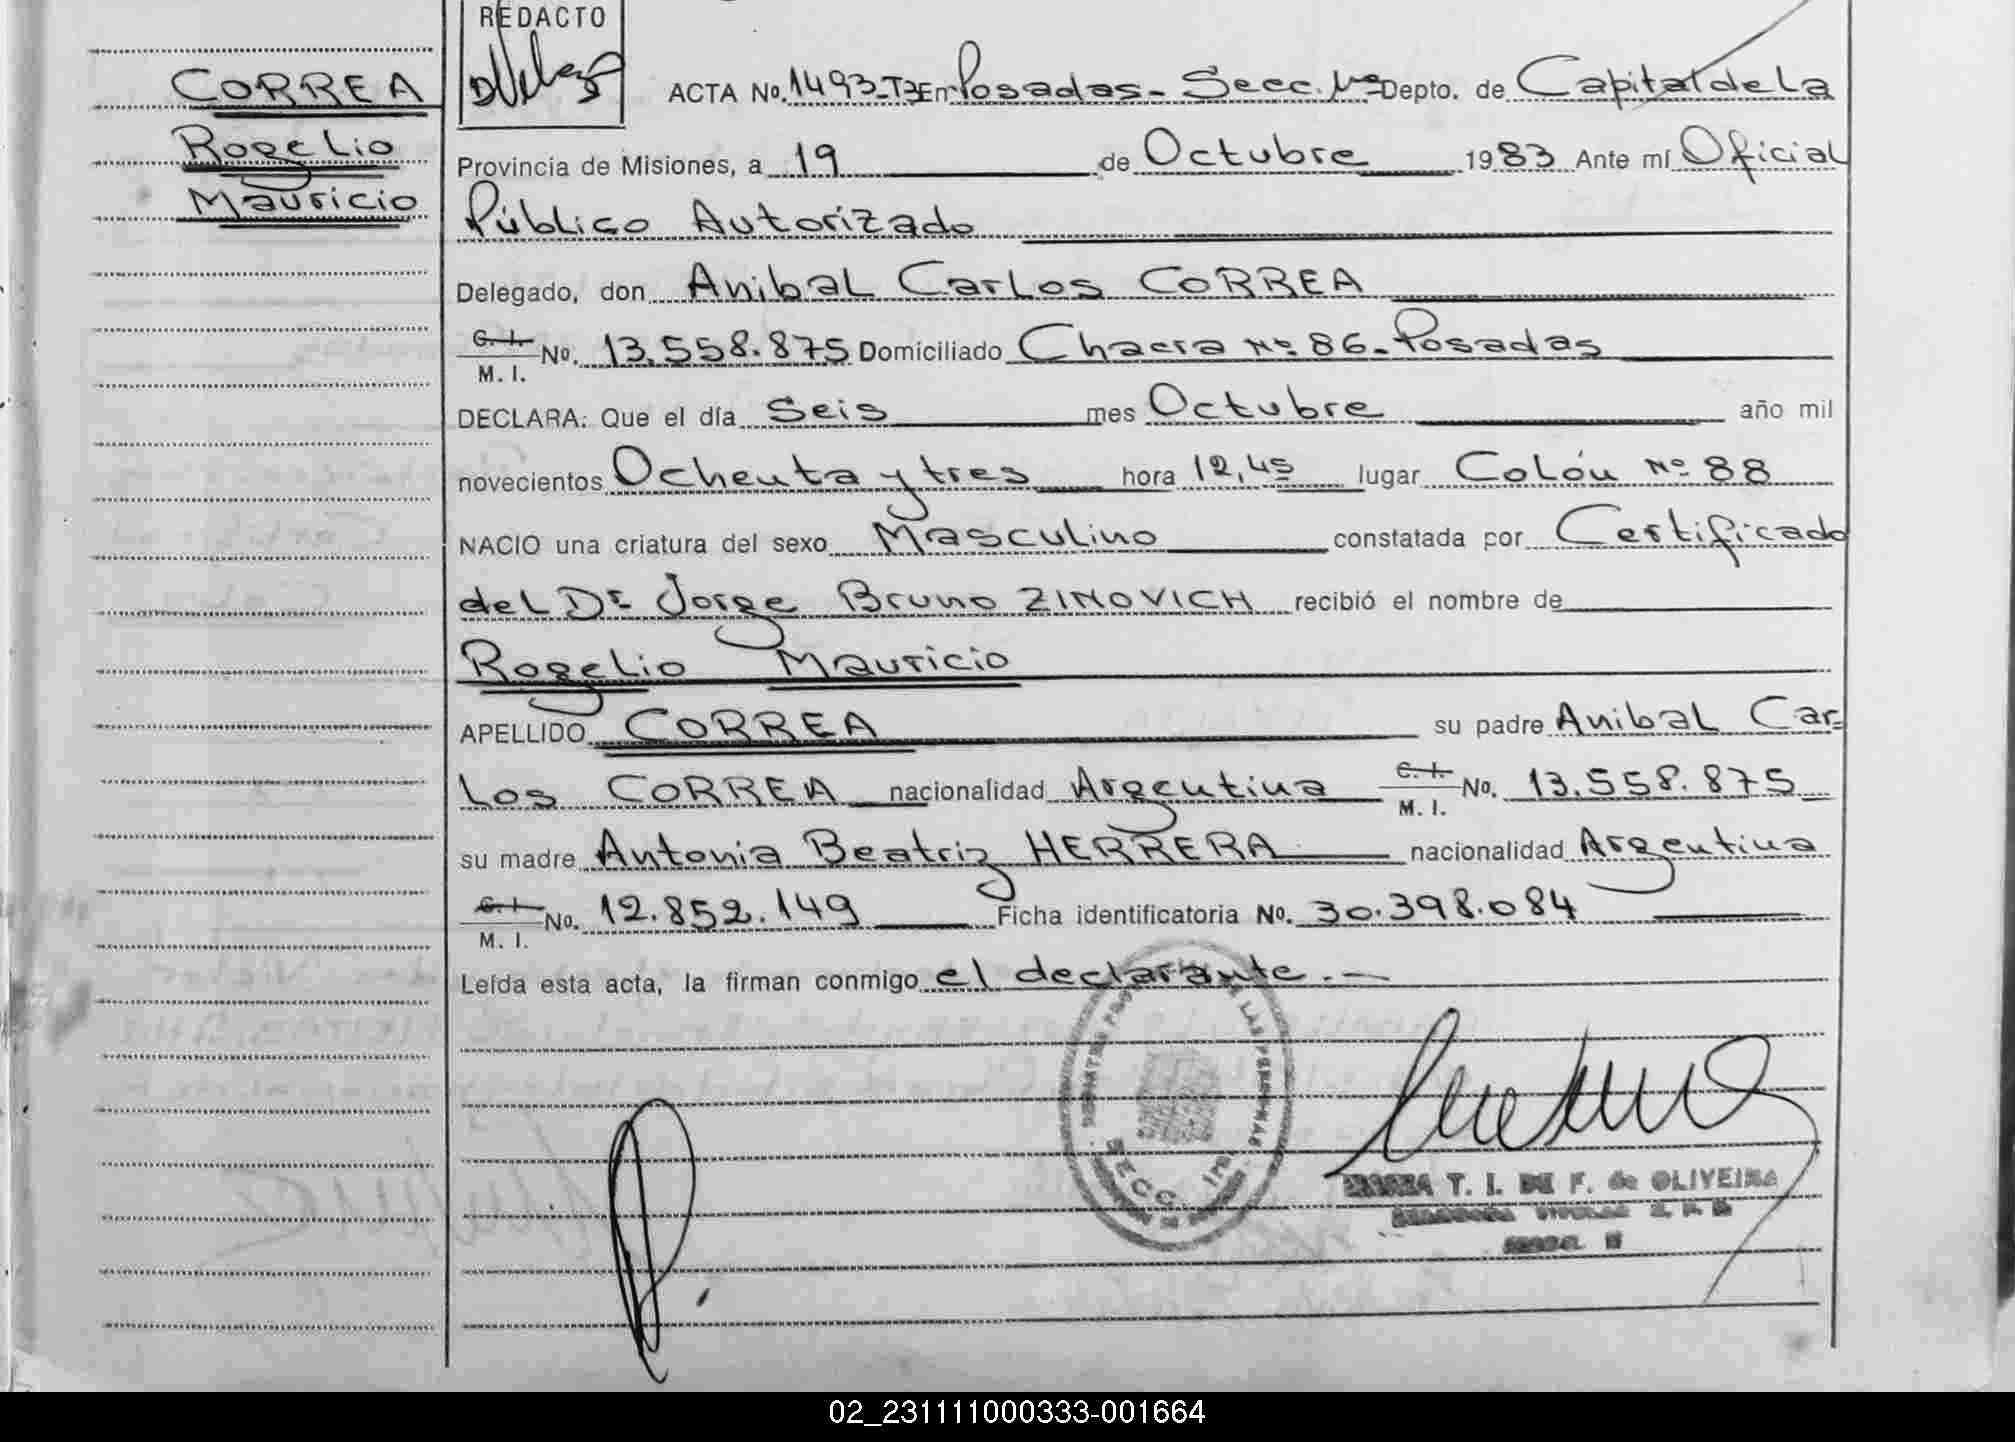 REDACTO
CORREA
Rogelio
Mauricio
ACTA No. 1493-T3 En Posadas - Secc. 1ra Depto. de Capital de La
Provincia de Misiones, a 19 de Octubre 1983 Ante mí Oficial
Público Autorizado
Delegado, don Anibal Carlos CORREA
C. I.
M. I. No. 13.558.875 Domiciliado Chacra Nº 86 - Posadas
DECLARA: Que el día Seis mes Octubre año mil
novecientos Ochenta y tres hora 12,45 lugar Colón Nº 88
NACIO una criatura del sexo Masculino constatada por Certificado
del Dr Jorge Bruno ZINOVICH recibió el nombre de
Rogelio Mauricio
APELLIDO CORREA su padre Anibal Car-
los CORREA nacionalidad Argentina C. I. M. I. No. 13.558.875
su madre Antonia Beatriz HERRERA nacionalidad Argentina
C. I.
M. I. No. 12.852.149 Ficha identificatoria No. 30.398.084
Leída esta acta, la firman conmigo el declarante.-
DE LAS PERSONAS
SECC. 1ra
T. I. DE F. de OLIVEIRA
02_231111000333-001664